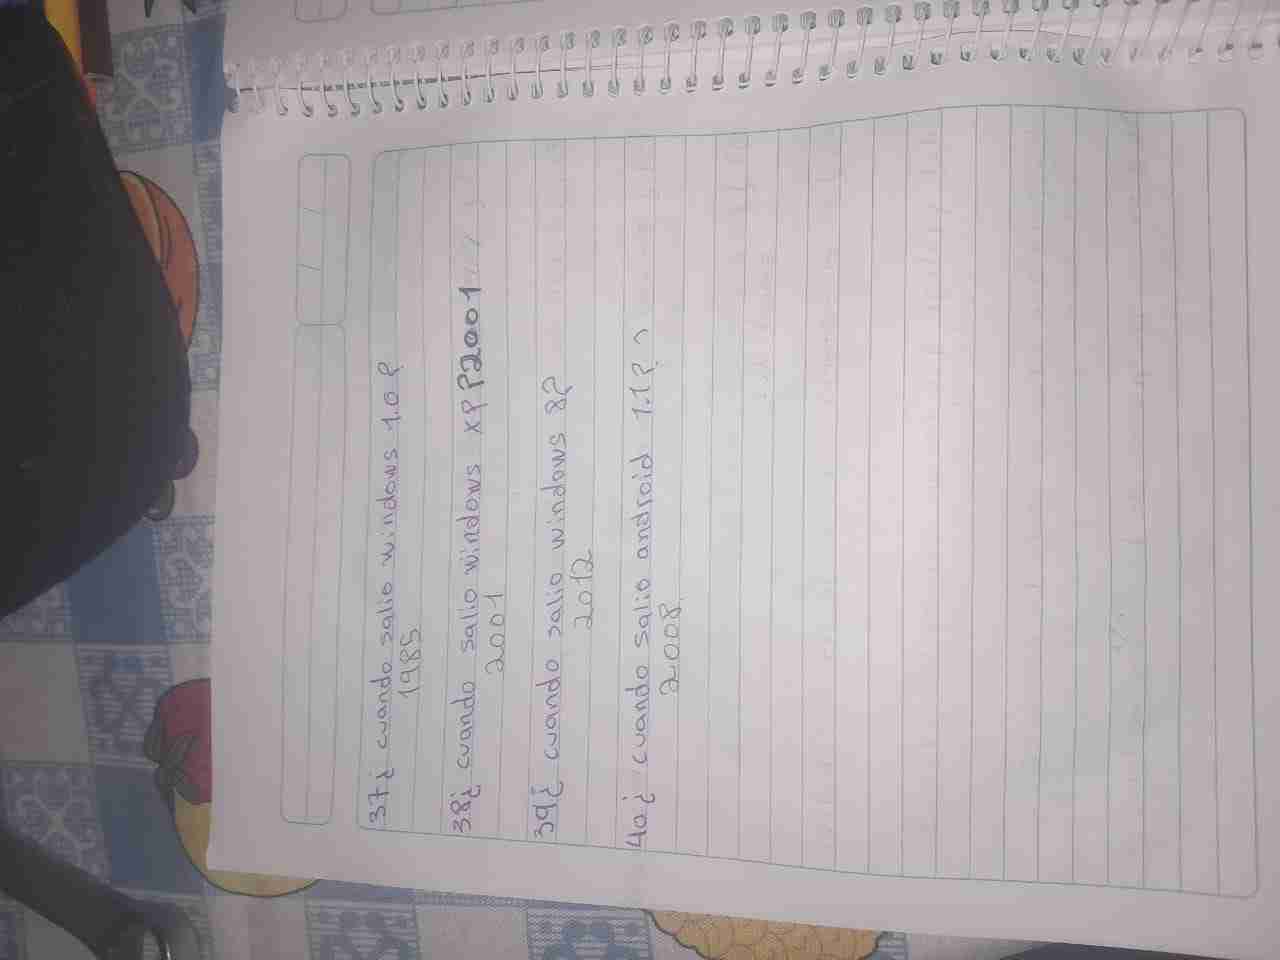 37¿ cuando salio windows 1.0?
1985
38¿ cuando salio windows xp?2001
2001
39¿ cuando salio windows 8?
2012
40¿ cuando salio android 1.1?
2008